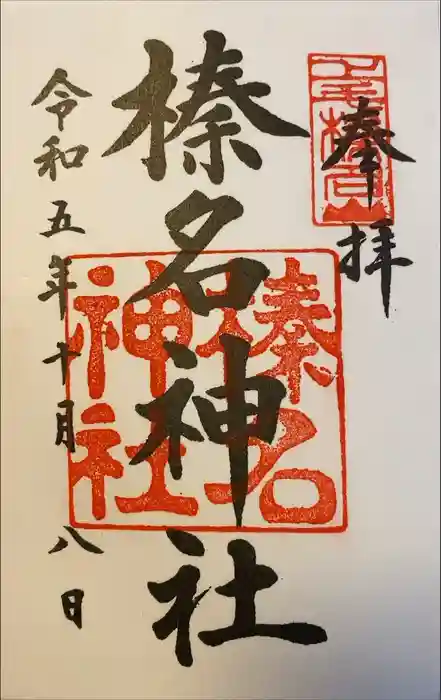 奉拝
榛名神社
榛名神社
令和五年十月八日